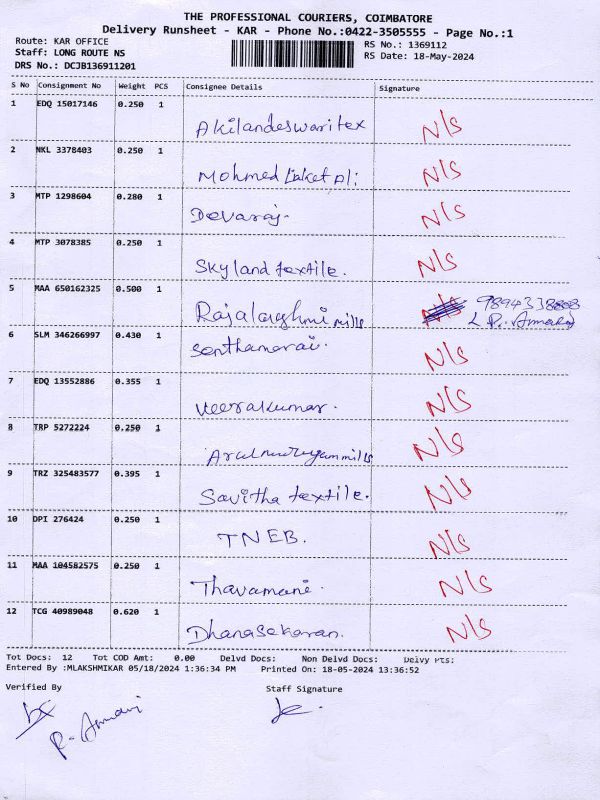 THE PROFESSIONAL COURIERS, COIMBATORE
Delivery Runsheet - KAR - Phone No.:0422-3505555 - Page No.:1
Route: KAR OFFICE
RS No.: 1369112
Staff: LONG ROUTE NS
RS Date: 18-May-2024
DRS No.: DCJB136911201
S No Consignment No Weight PCS Consignee Details Signature
1 EDQ 15017146 0.250 1
Akilandeswaritex N/S
2 NKL 3378403 0.250 1
Mohmed N/S
3 MTP 1298604 0.280 1
Devaraj. N/S
4 MTP 3078385 0.250 1
Skyland textile. N/S
5 MAA 650162325 0.500 1
Rajalaxshmi mills
6 SLM 346266997 0.430 1
Senthamarai. N/S
7 EDQ 13552886 0.355 1
Veerakumar. N/S
8 TRP 5272224 0.250 1
N/S
9 TRZ 325483577 0.395 1
Savitha textile. N/S
10 DPI 276424 0.250 1
TNEB. N/S
11 MAA 104582575 0.250 1
Thavamani. N/S
12 TCG 40989048 0.620 1
Dhanasekaran. N/S
Tot Docs: 12 Tot COD Amt: 0.00 Delvd Docs: Non Delvd Docs: Delvy Pts:
Entered By :MLAKSHMIKAR 05/18/2024 1:36:34 PM Printed On: 18-05-2024 13:36:52
Verified By Staff Signature